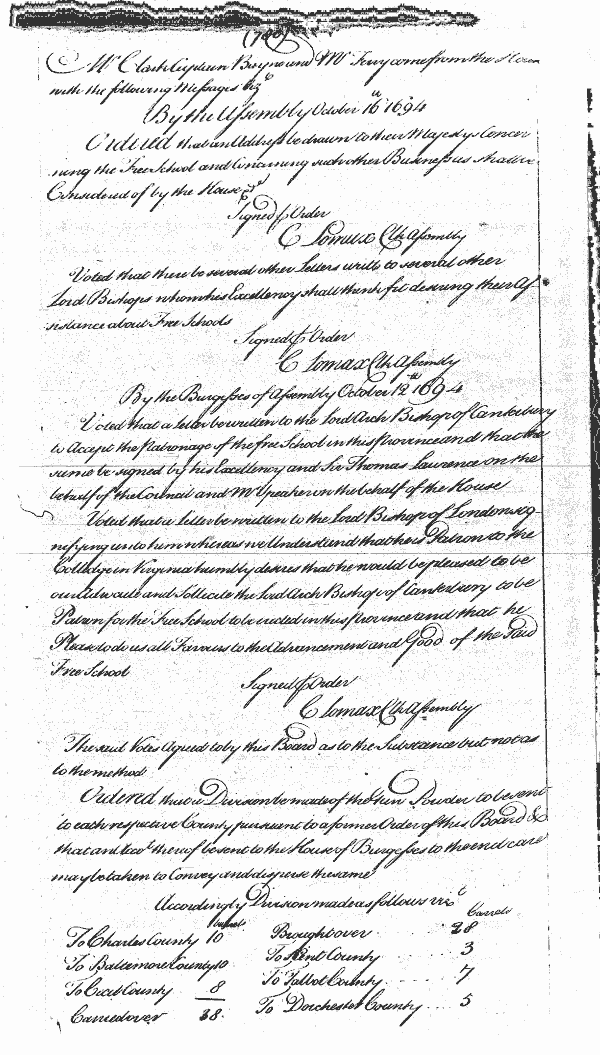 Mr Clark Captain Bayne and Mr Frey come from the House
with the following Messages vizt
By the Assembly October 16th 1694
Ordered that an Address be drawn to their Majestys Concer
ning the Free School and Concerning such other Business as shall be
Considered of by the House
Signed p Order
C Lomax Clk Assembly
Voted that there be several other Letters writt to several other
Lord Bishops whom his Excellency shall think fit desiring their As
sistance about Free Schools
Signed p Order
C Lomax Clk Assembly
By the Burgesses of Assembly October 12th 1694
Voted that a Letter be written to the Lord Arch Bishop of Canterbury
to Accept the Patronage of the free School in this Province and that the
same be signed by his Excellency and Sir Thomas Lawrence on the
behalf of the Council and Mr Speaker in the behalf of the House
Voted that a Letter be written to the Lord Bishop of London sig
nifying unto him whereas we Understand that he is Patron to the
Colledge in Virginia humbly desires that he would be pleased to be
our Advocate and Sollicite the Lord Arch Bishop of Canterbury to be
Patron for the Free School to be erected in this Province and that he
Please to do us all Favours to the Advancement and Good of the said
Free School
Signed p Order
C Lomax Clk Assembly
The said Votes Agreed to by this Board as to the Substance but not as
to the method
Ordered that a Division be made of the Gun Powder to be sent
to each respective County pursuant to a former Order of this Board &
that an Acct thereof be sent to the House of Burgesses to the end care
may be taken to Convey and disperse the same
Accordingly Division made as follows vizt
barrels Barrels
To Charles County 10 Brought over 28
To Baltemore County 10 To Kent County 3
To Cecil County 8 To Talbot County 7
Carried over 28 To Dorchester County 5